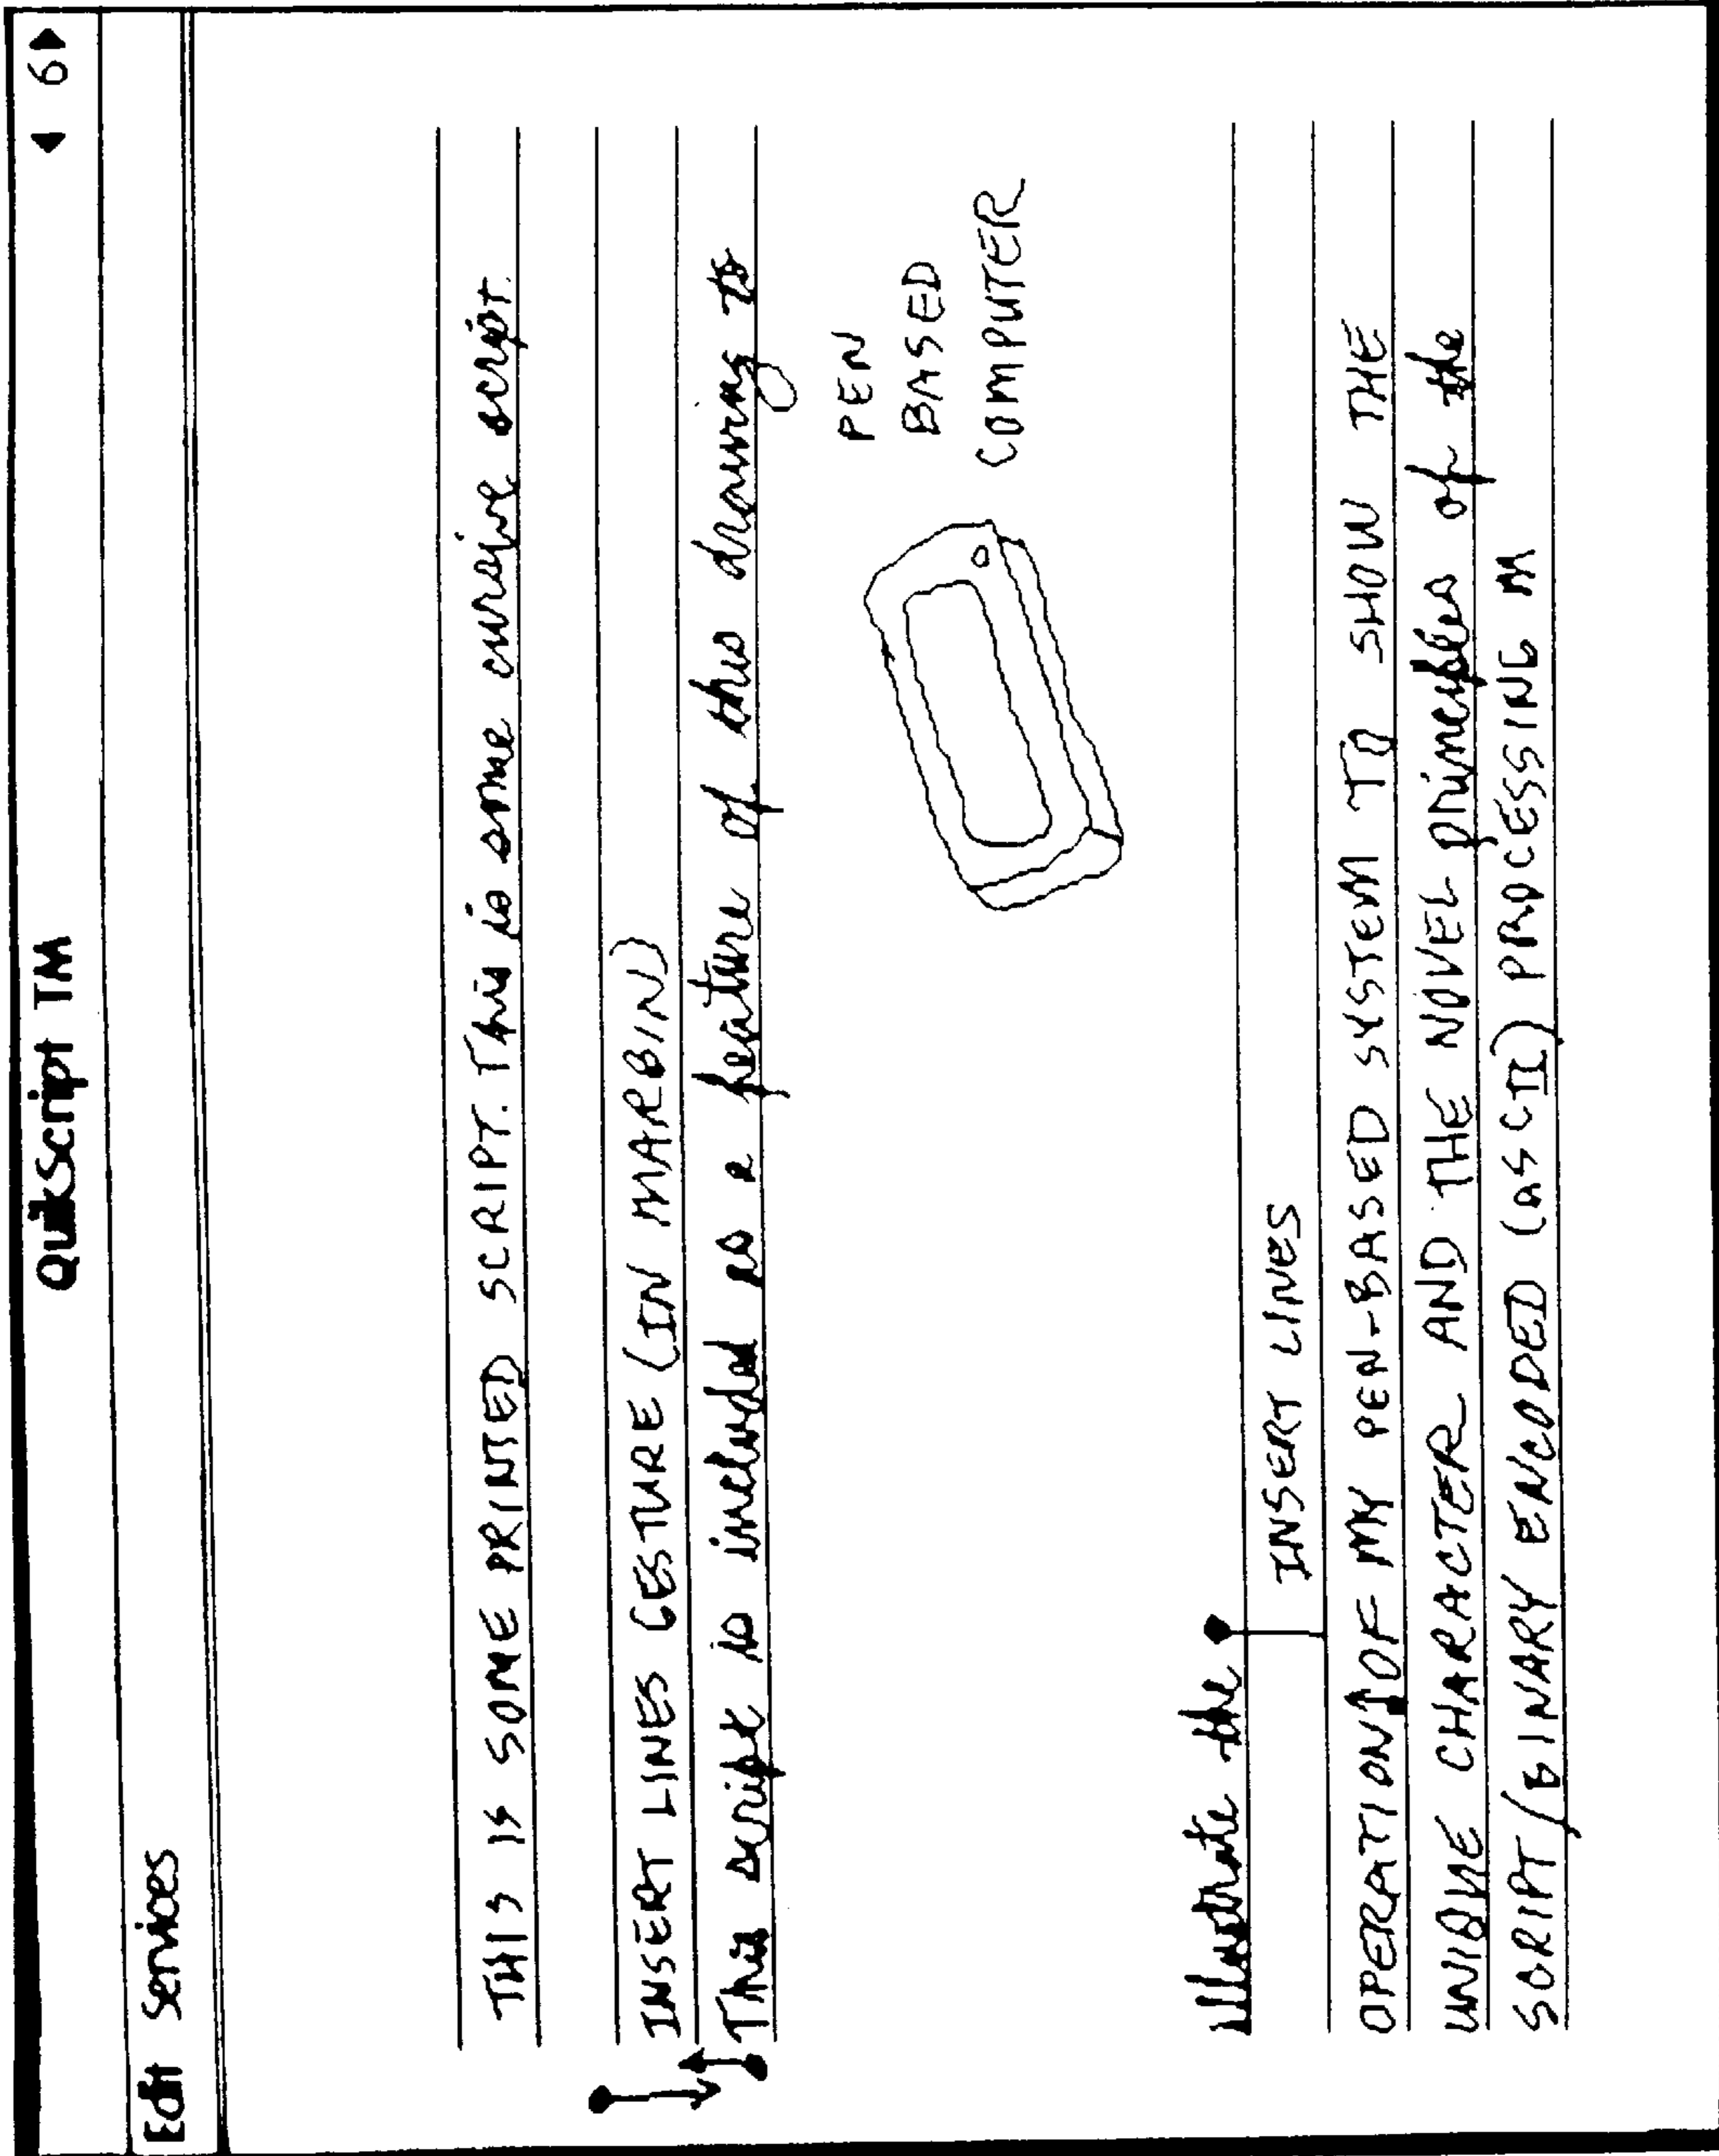 QuikScript TM
6
Edit Services
THIS IS SOME PRINTED SCRIPT. This is some cursive script.
INSERT LINES GESTURE (IN MARBIN)
This script is included as a feature of this drawing to
PEN
BASED
COMPUTER
illustrate the
INSERT LINES
OPERATION OF MY PEN-BASED SYSTEM TO SHOW THE
UNIQUE CHARACTER AND THE NOVEL principles of the
SCRIPT/BINARY ENCODED (ASCII) PROCESSING M